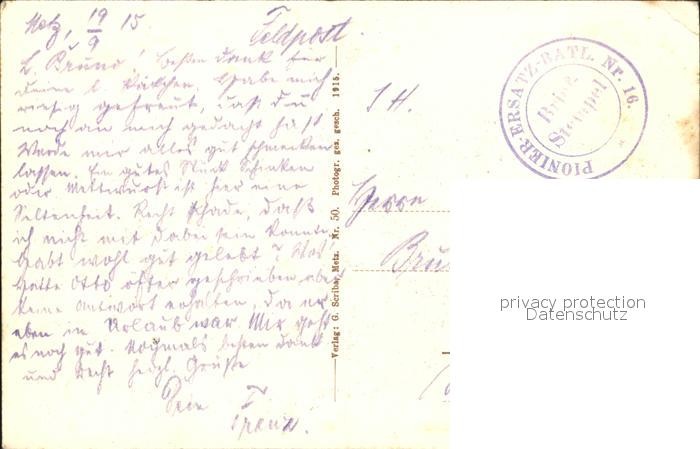 Metz, 19/9 15.
Feldpost.
L. Bruno! Besten Dank für
deine l. Päckchen. Habe mich
riesig gefreut, daß du
noch an mich gedacht hast
Werde mir alles gut schmecken
lassen. Ein gutes Stück Schinken
oder Mettwurst ist hier eine
Seltenheit. Recht schade, daß
ich nicht mit dabei sein konnte
habt wohl gut gelebt?
hatte Otto öfter geschrieben aber
keine Antwort erhalten, da er
eben in Urlaub war Mir geht
es noch gut. Nochmals besten Dank
und recht herzl. Grüße
Dein
Franz.
Verlag: G. Scriba, Metz. Nr. 50. Photogr. ges. gesch. 1915.
S H.
PIONIER-ERSATZ-BATL. Nr. 16.
Brief
Stempel
Herrn
Bru
privacy protection
Datenschutz